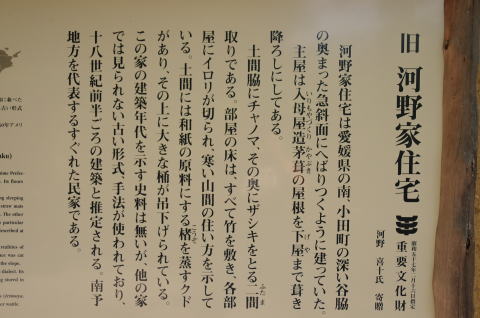 旧 河野家住宅
重要文化財
昭和五十三年一月二十一日指定
河野 喜十氏 寄贈
河野家住宅は愛媛県の南、小田町の深い谷脇
の奥まった急斜面にへばりつくように建っていた。
いりもやづくり かやぶき
げや
主屋は入母屋造茅葺の屋根を下屋まで葺き
降ろしにしてある。
ふたま
土間脇にチャノマ、その奥にザシキをとる二間
取りである。部屋の床は、すべて竹を敷き、各部
屋にイロリが切られ、寒い山間の住い方を示して
いる。土間には和紙の原料にする楮を蒸すクド
があり、その上に大きな桶が吊下げられている。
この家の建築年代を示す史料は無いが、他の家
では見られない古い形式、手法が使われており、
十八世紀前半ごろの建築と推定される。南予
地方を代表するすぐれた民家である。